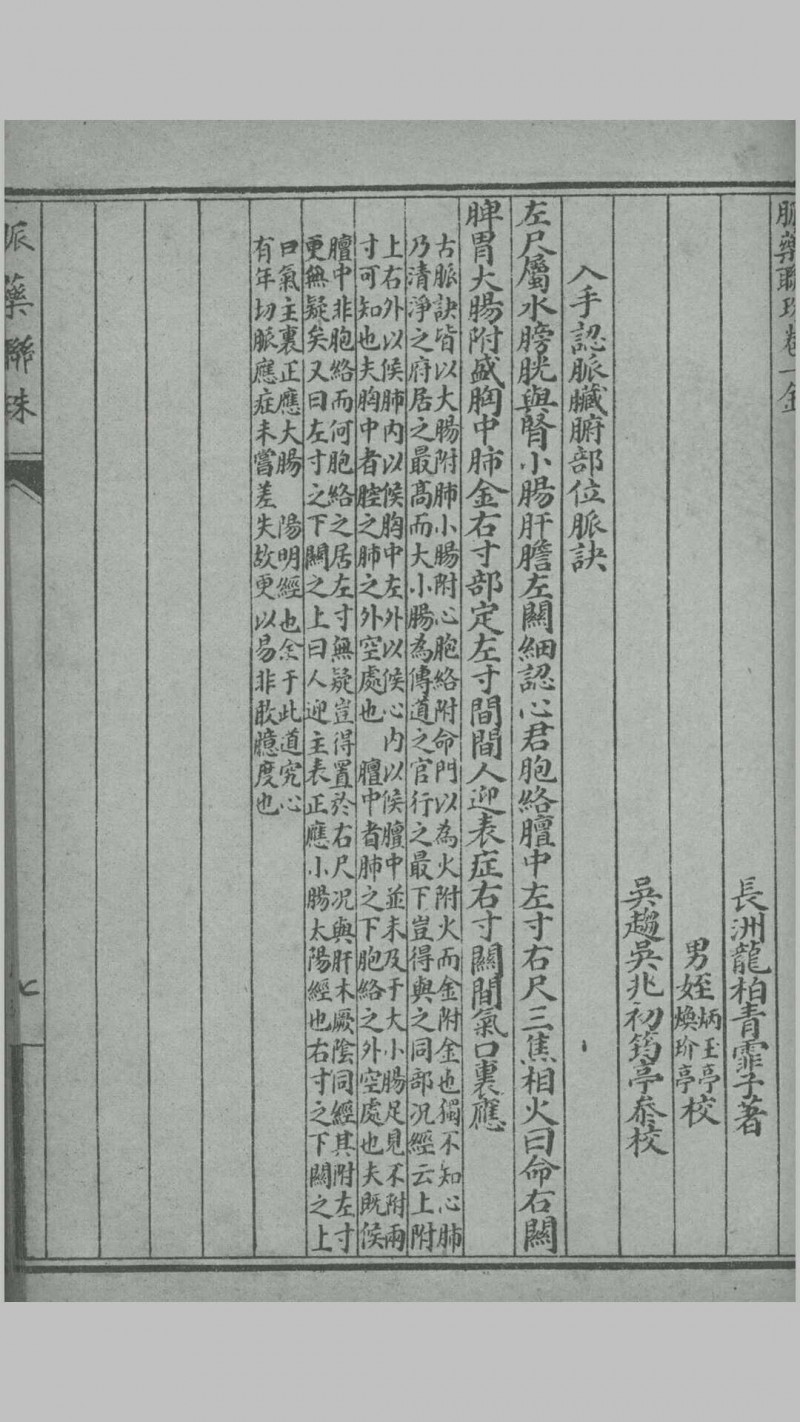 脈藥聯珠卷一 金
長洲龍柏青霏子著
男 炳玉亭
姪 煥玠亭 校
吳趨吳兆初筠亭叅校
入手認脈臟腑部位脈訣
左尺屬水膀胱與腎小腸肝膽左關細認心君胞絡膻中左寸右尺三焦相火曰命右關
脾胃大腸附盛胸中肺金右寸部定左寸間間人迎表症右寸關間氣口裏應
古脈訣皆以大腸附肺小腸附心胞絡附命門以為火附火而金附金也獨不知心肺
乃清淨之府居之最高而大小腸為傳道之官行之最下豈得與之同部况經云上附
上右外以候肺内以候胸中左外以候心内以候膻中並未及于大小腸足見不附兩
寸可知也夫胸中者腔之肺之外空處也 膻中者肺之下胞絡之外空處也夫既候
膻中非胞絡而何胞絡之居左寸無疑豈得置於右尺况與肝木厥陰同經其附左寸
更無疑矣又曰左寸之下關之上曰人迎主表正應小腸太陽經也右寸之下關之上
曰氣主裏正應大腸 陽明經也余于此道究心
有年切脈應症未嘗差失故更以易非敢臆度也
脈藥聯珠
七